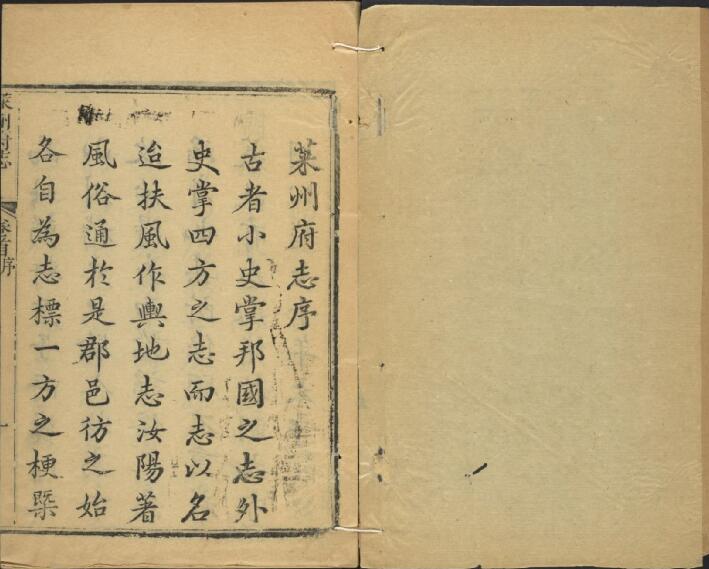 萊州府志序
古者小史掌邦國之志外
史掌四方之志而志以名
迨扶風作輿地志汝陽著
風俗通於是郡邑彷之始
各自為志標一方之梗槩
萊州府志
卷首序
一